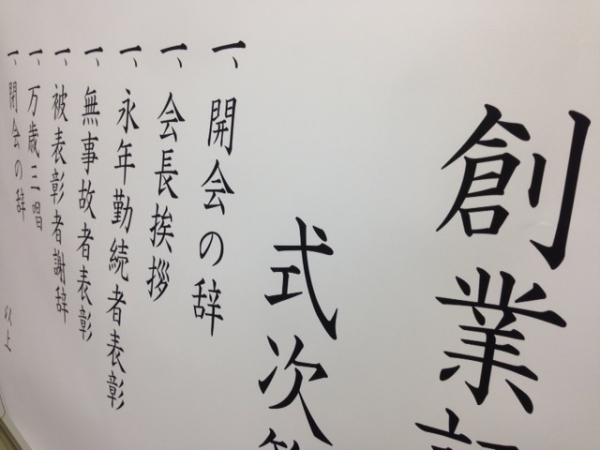 創業記
式次第
一、開会の辞
一、会長挨拶
一、永年勤続者表彰
一、無事故者表彰
一、被表彰者謝辞
一、万歳三唱
一、閉会の辞
以上